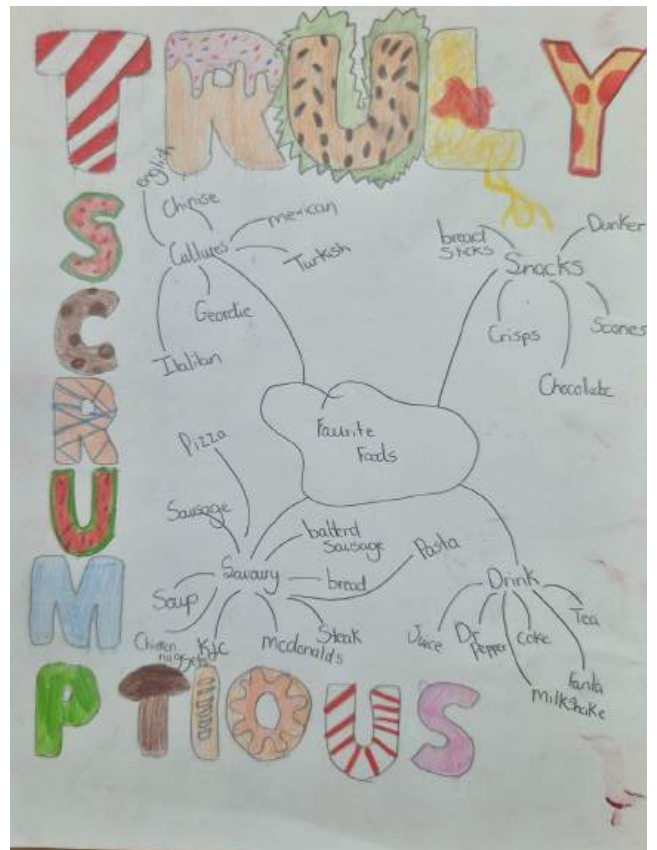 TRULY
SCRUMPTIOUS
english
Chinese
mexican
Cultures
Turkish
Geordie
Italitan
bread
Sticks
Dunker
Snacks
Crisps
Scones
Chocolate
Favrite
Foods
Pizza
Sausage
batterd
Sausage
Pasta
Savoury
bread
Soup
Chicken
nuggets
Kfc
mcdonalds
Steak
Drink
Juice
Dr
Pepper
Coke
Tea
Fanta
Milkshake